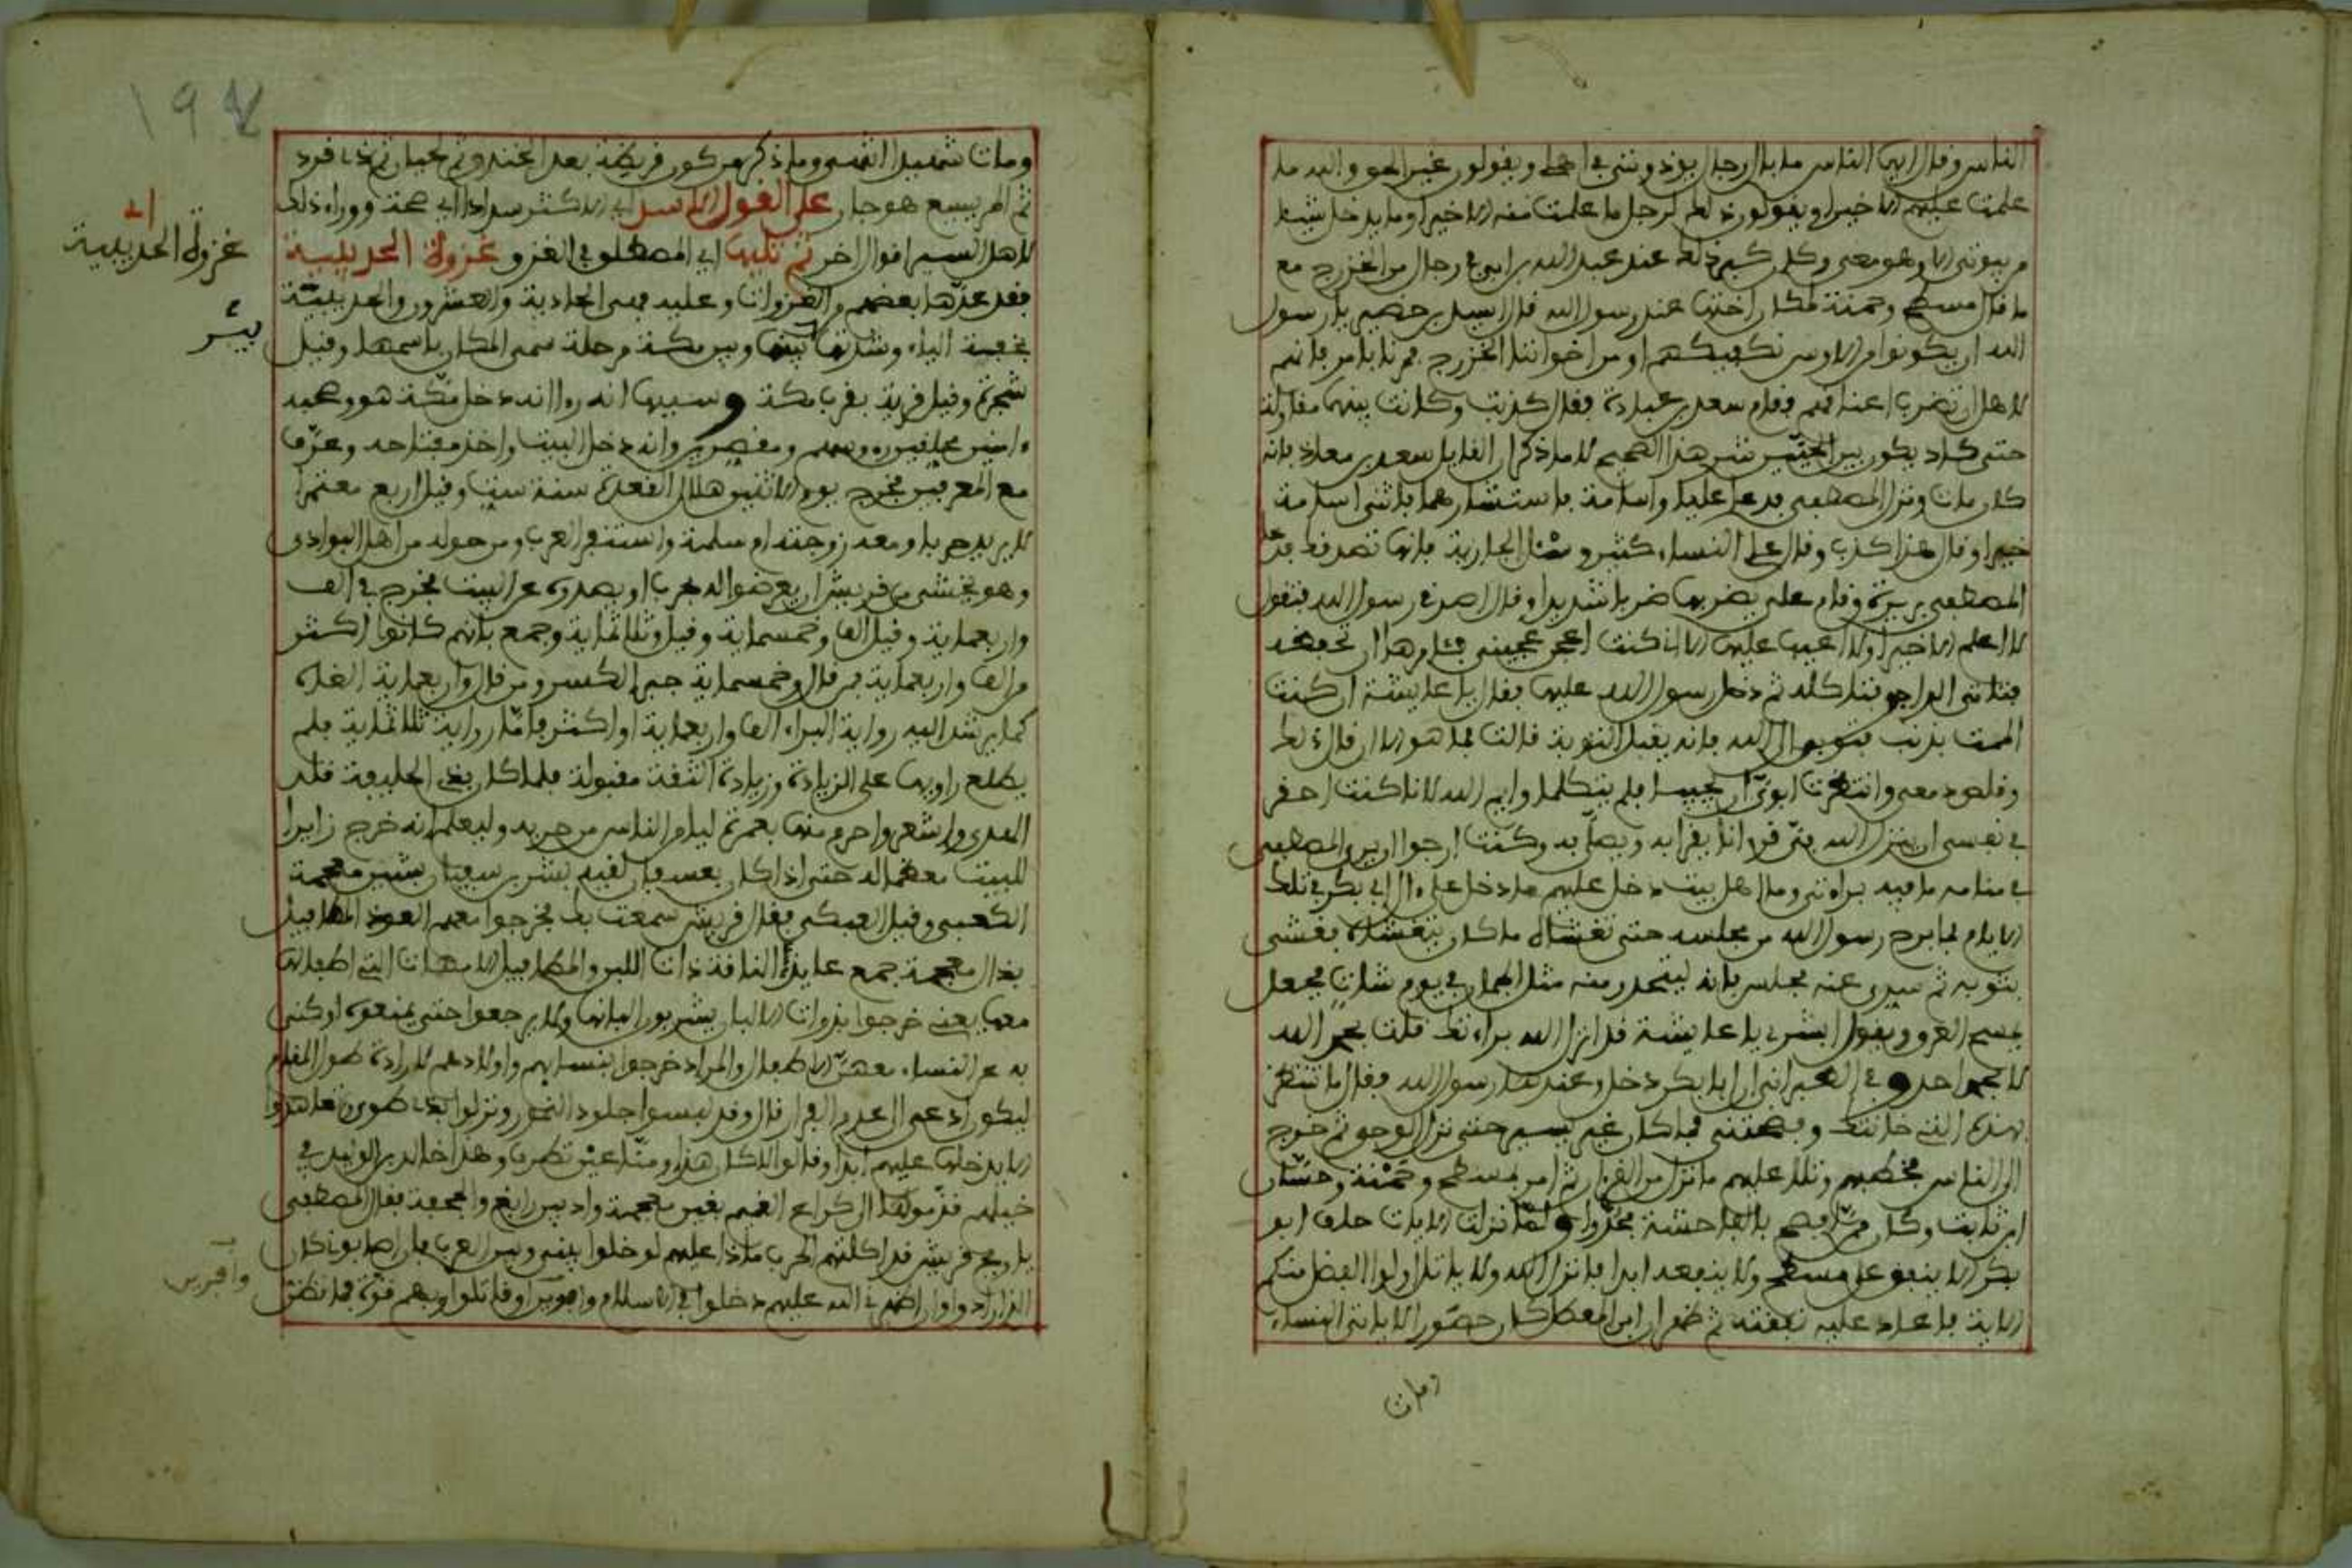 الناس وقال ايها الناس ما بال رجال يوذونني في اهلي ويقولون غير الحق والله ما
علمت عليهم الا خيرا ويقولون ذلك لرجل ما علمت منه الا خيرا وما يدخل بيتا
من بيوتي الا وهو معي وكان كبر ذلك عند عبد الله بن ابي في رجال من الخزرج مع
ما قال مسطح وحمنة لمكان اختها عند رسول الله فقال اسيد بن حضير يا رسول
الله ان يكونوا من الاوس نكفيكهم او من اخواننا الخزرج فمرنا بامر فانهم
لاهل ان تضرب اعناقهم فقام سعد بن عبادة فقال كذبت وكانت بينهم مقاولة
حتى كاد يكون بين الحيين شر هذا الصحيح لا ما ذكر ان القايل سعد بن معاذ فانه
كان مات ونزل المصطفى فدعا عليا واسامة فاستشارهما فاثنى اسامة
خيرا وقال هذا كذب وقال علي النساء كثير وسل الجارية فانها تصدقك فدعا
المصطفى بريرة وقام علي يضربها ضربا شديدا وقال اصدقي رسول الله فتقول
لا اعلم الا خيرا ولا اعيب عليها الا اني كنت اعجن عجيني فتنام
فتاتي الداجن فتاكله ثم دخل رسول الله عليها فقال يا عايشة ان كنت
الممت بذنب فتوبي الى الله فانه يقبل التوبة قالت فما هو الا ان قال ذلك
وقلص دمعي وانتظرت ابوي ان يجيبا فلم يتكلما وايم الله لانا كنت احقر
في نفسي ان ينزل الله في قرانا يقرا به ويصلى به وكنت ارجو ان يرى المصطفى
في منامه ما فيه براءتي وما اهل بيت دخل عليهم ما دخل على ءال ابي بكر في تلك
الايام فما برح رسول الله من مجلسه حتى تغشاه ما كان يتغشاه فغشي
بثوبه ثم سري عنه فجلس فانه ليتحدر منه مثل الجمان في يوم شات فجعل
يمسح العرق ويقول ابشري يا عايشة قد انزل الله براءتك قلت بحمد الله
لا بحمد احد وفي الطبراني ان ابا بكر دخل وعندها رسول الله فقال ما تنتظر
بهذه التي خانتك وفضحتني فما كان غير يسير حتى نزل الوحي ثم خرج
الى الناس فخطبهم وتلا عليهم ما نزل من القران ثم امر بمسطح وحمنة وحسان
ابن ثابت وكان ممن افصح بالفاحشة فحدوا ولما نزلت الايات حلف ابو
بكر لا ينفق على مسطح ولا ينفعه ابدا فانزل الله ولا ياتل اولوا الفضل منكم
الاية فاعاد عليه نفقته ثم ظهر ان ابن المعطل كان حصورا لا ياتي النساء
ومات
١٩٧
ومات شهيدا انتهى وما ذكر من كون قريظة بعد الخندق ثم لحيان ثم ذي قرد
ثم المريسيع هو جار على القول الاسد اي الاكثر سدادا اي صحة ووراء ذلك
لاهل السير اقوال اخر ثم تليها اي المصطلق في الغزو غزوة الحديبية
فقد عدها بعضهم من الغزوات وعليه فهي الحادية والعشرون والحديبية
بخفيفة الياء وشدتها بينها وبين مكة مرحلة سمي المكان باسمها وقيل
شجرة وقيل قرية بقرب مكة وسببها انه راى انه دخل مكة هو وصحبه
ءامنين محلقين رءوسهم ومقصرين وانه دخل البيت واخذ مفتاحه وعرف
مع المعرفين فخرج يوم الاثنين هلال القعدة سنة ست وقيل اربع معتمرا
لا يريد حربا ومعه زوجته ام سلمة واستنفر العرب ومن حوله من اهل البوادي
وهو يخشى من قريش ان يعرضوا له بحرب او يصدوه عن البيت فخرج في الف
واربعماية وقيل الف وخمسماية وقيل وثلاثماية وجمع بانهم كانوا اكثر
من الف واربعماية فمن قال وخمسماية جبر الكسر ومن قال واربعماية الغاه
كما يرشد اليه رواية البراء الف واربعماية او اكثر فاما رواية ثلاثماية فلم
يطلع راويها على الزيادة وزيادة الثقة مقبولة فلما كان بذي الحليفة قلد
الهدي واشعر واحرم منها بعمرة ليامن الناس من حربه وليعلم انه خرج زايرا
للبيت معظما له حتى اذا كان بعسفان لقيه بشر بن سفيان بشين معجمة
الكعبي وقيل العتكي فقال قريش سمعت بك فخرجوا معهم العوذ المطافيل
بذال معجمة جمع عايذ الناقة ذات اللبن والمطافيل الامهات التي اطفالها
معها يعني خرجوا بذوات الالبان يشربون البانها ولا يرجعوا حتى يمنعوه او كني
به عن النساء معهن الاطفال والمراد خرجوا بنسايهم واولادهم لارادة طول المقام
ليكون ادعى الى عدم الفرار قال وقد لبسوا جلود النمور ونزلوا بذي طوى تعاهدوا
لا يدخلها عليهم ابدا وقالوا لا كان هذا ومنا عين تطرف وهذا خالد بن الوليد في
خيلهم قدموها الى كراع الغميم بغين معجمة واد بين رابغ والجحفة فقال المصطفى
يا ويح قريش قد اكلتهم الحرب ماذا عليهم لو خلوا بيني وبين العرب فان اصابوني كان
الذي ارادوا وان اظهرني الله عليهم دخلوا في الاسلام وافرين او قاتلوا وبهم قوة فما تظن
غزوة الحديبية
بيئر
وافرين